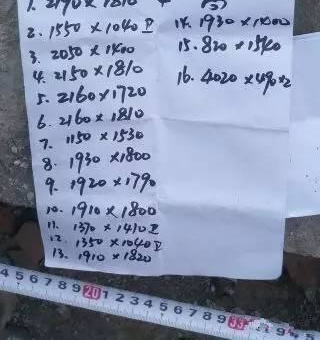 1. 2190 × 1810
2. 1550 × 1040
3. 2050 × 1400
4. 2150 × 1810
5. 2160 × 1720
6. 2160 × 1810
7. 1150 × 1530
8. 1930 × 1800
9. 1920 × 1790
10. 1910 × 1800
11. 1370 × 1410
12. 1350 × 1040
13. 1910 × 1820
14. 1930 ×
15. 820 × 1540
16. 4020 × 490×2
4 5 6 7 8 9 20 1 2 3 4 5 6 7 8 9